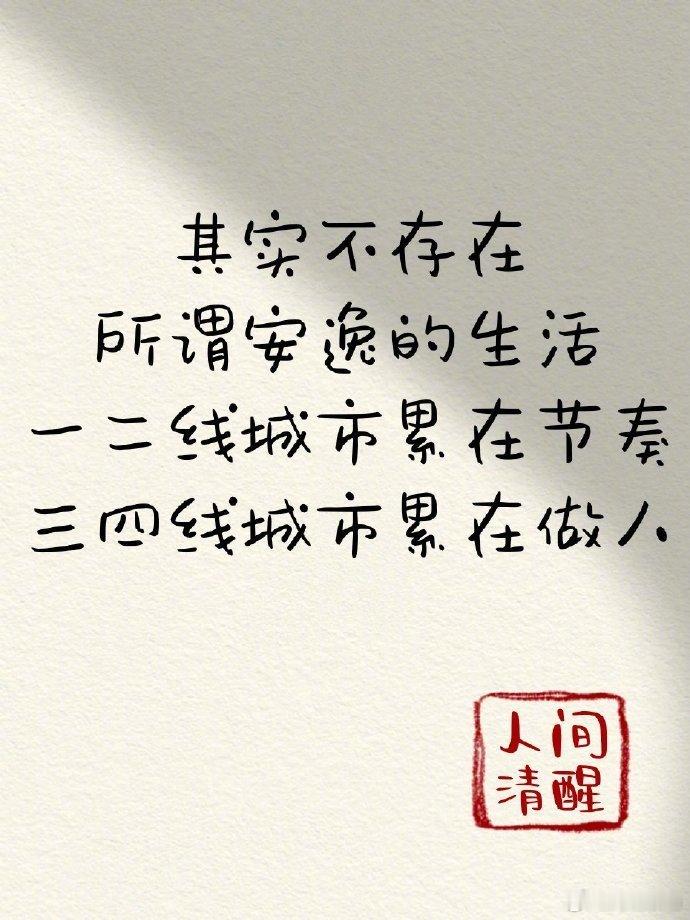 其实不存在
所谓安逸的生活
一二线城市累在节奏
三四线城市累在做人
人间
清醒